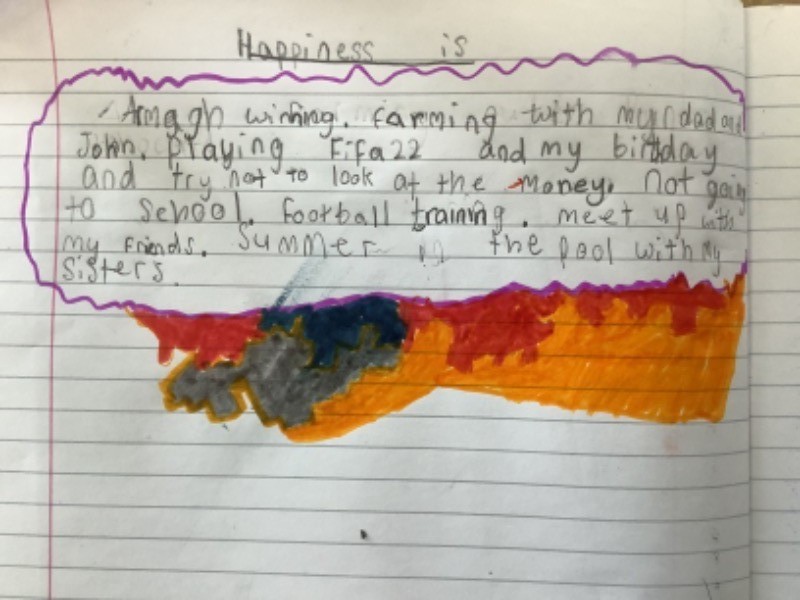 Happiness is
Armagh winning. farming with my dad and
John. Playing Fifa 22 and my birthday
and try not to look at the money. Not going
to School. football training. meet up with
my Friends. Summer in the pool with my
sisters.